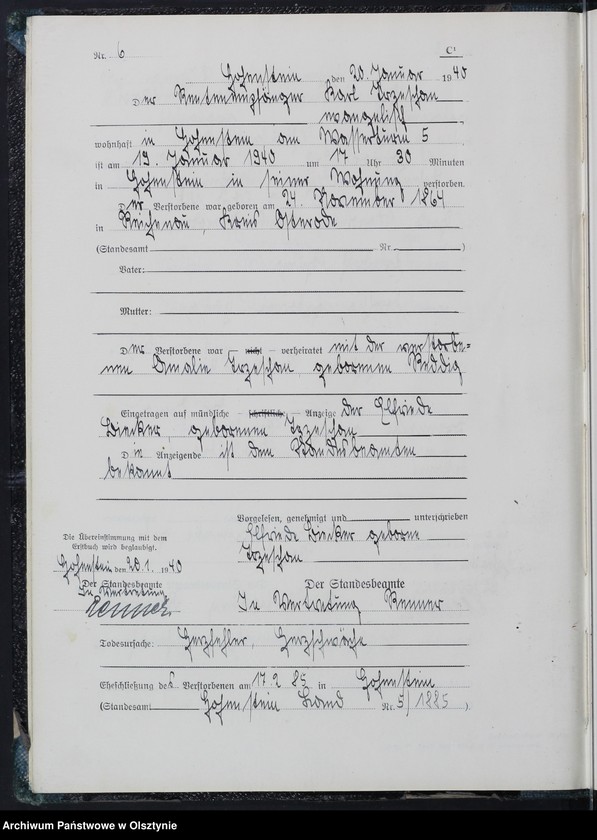 Nr. 6 C¹
Hohenstein den 20. Januar 1940
Der Rentenempfänger Karl Trzeschan
evangelisch
wohnhaft in Hohenstein am Wasserturm 5
ist am 19. Januar 1940 um 17 Uhr 30 Minuten
in Hohenstein in seiner Wohnung verstorben.
Der Verstorbene war geboren am 24. November 1864
in Reichenau, Kreis Osterode
(Standesamt Nr. )
Vater:
Mutter:
Der Verstorbene war – nicht – verheiratet mit der verstorbe-
nen Amalie Trzeschan geborenen Reddig
Eingetragen auf mündliche – schriftliche – Anzeige der Elfriede
Diecker, geborenen Trzeschan
Die Anzeigende ist dem Standesbeamten
bekannt
Vorgelesen, genehmigt und unterschrieben
Elfriede Diecker geborene
Trzeschan
Die Übereinstimmung mit dem
Erstbuch wird beglaubigt.
Hohenstein den 20.1. 1940
Der Standesbeamte
In Vertretung
Renner
Der Standesbeamte
In Vertretung Renner
Todesursache: Herzfehler, Herzschwäche
Eheschließung des Verstorbenen am 17.2.85 in Hohenstein
(Standesamt Hohenstein Land Nr. 5/1885 ).
Archiwum Państwowe w Olsztynie